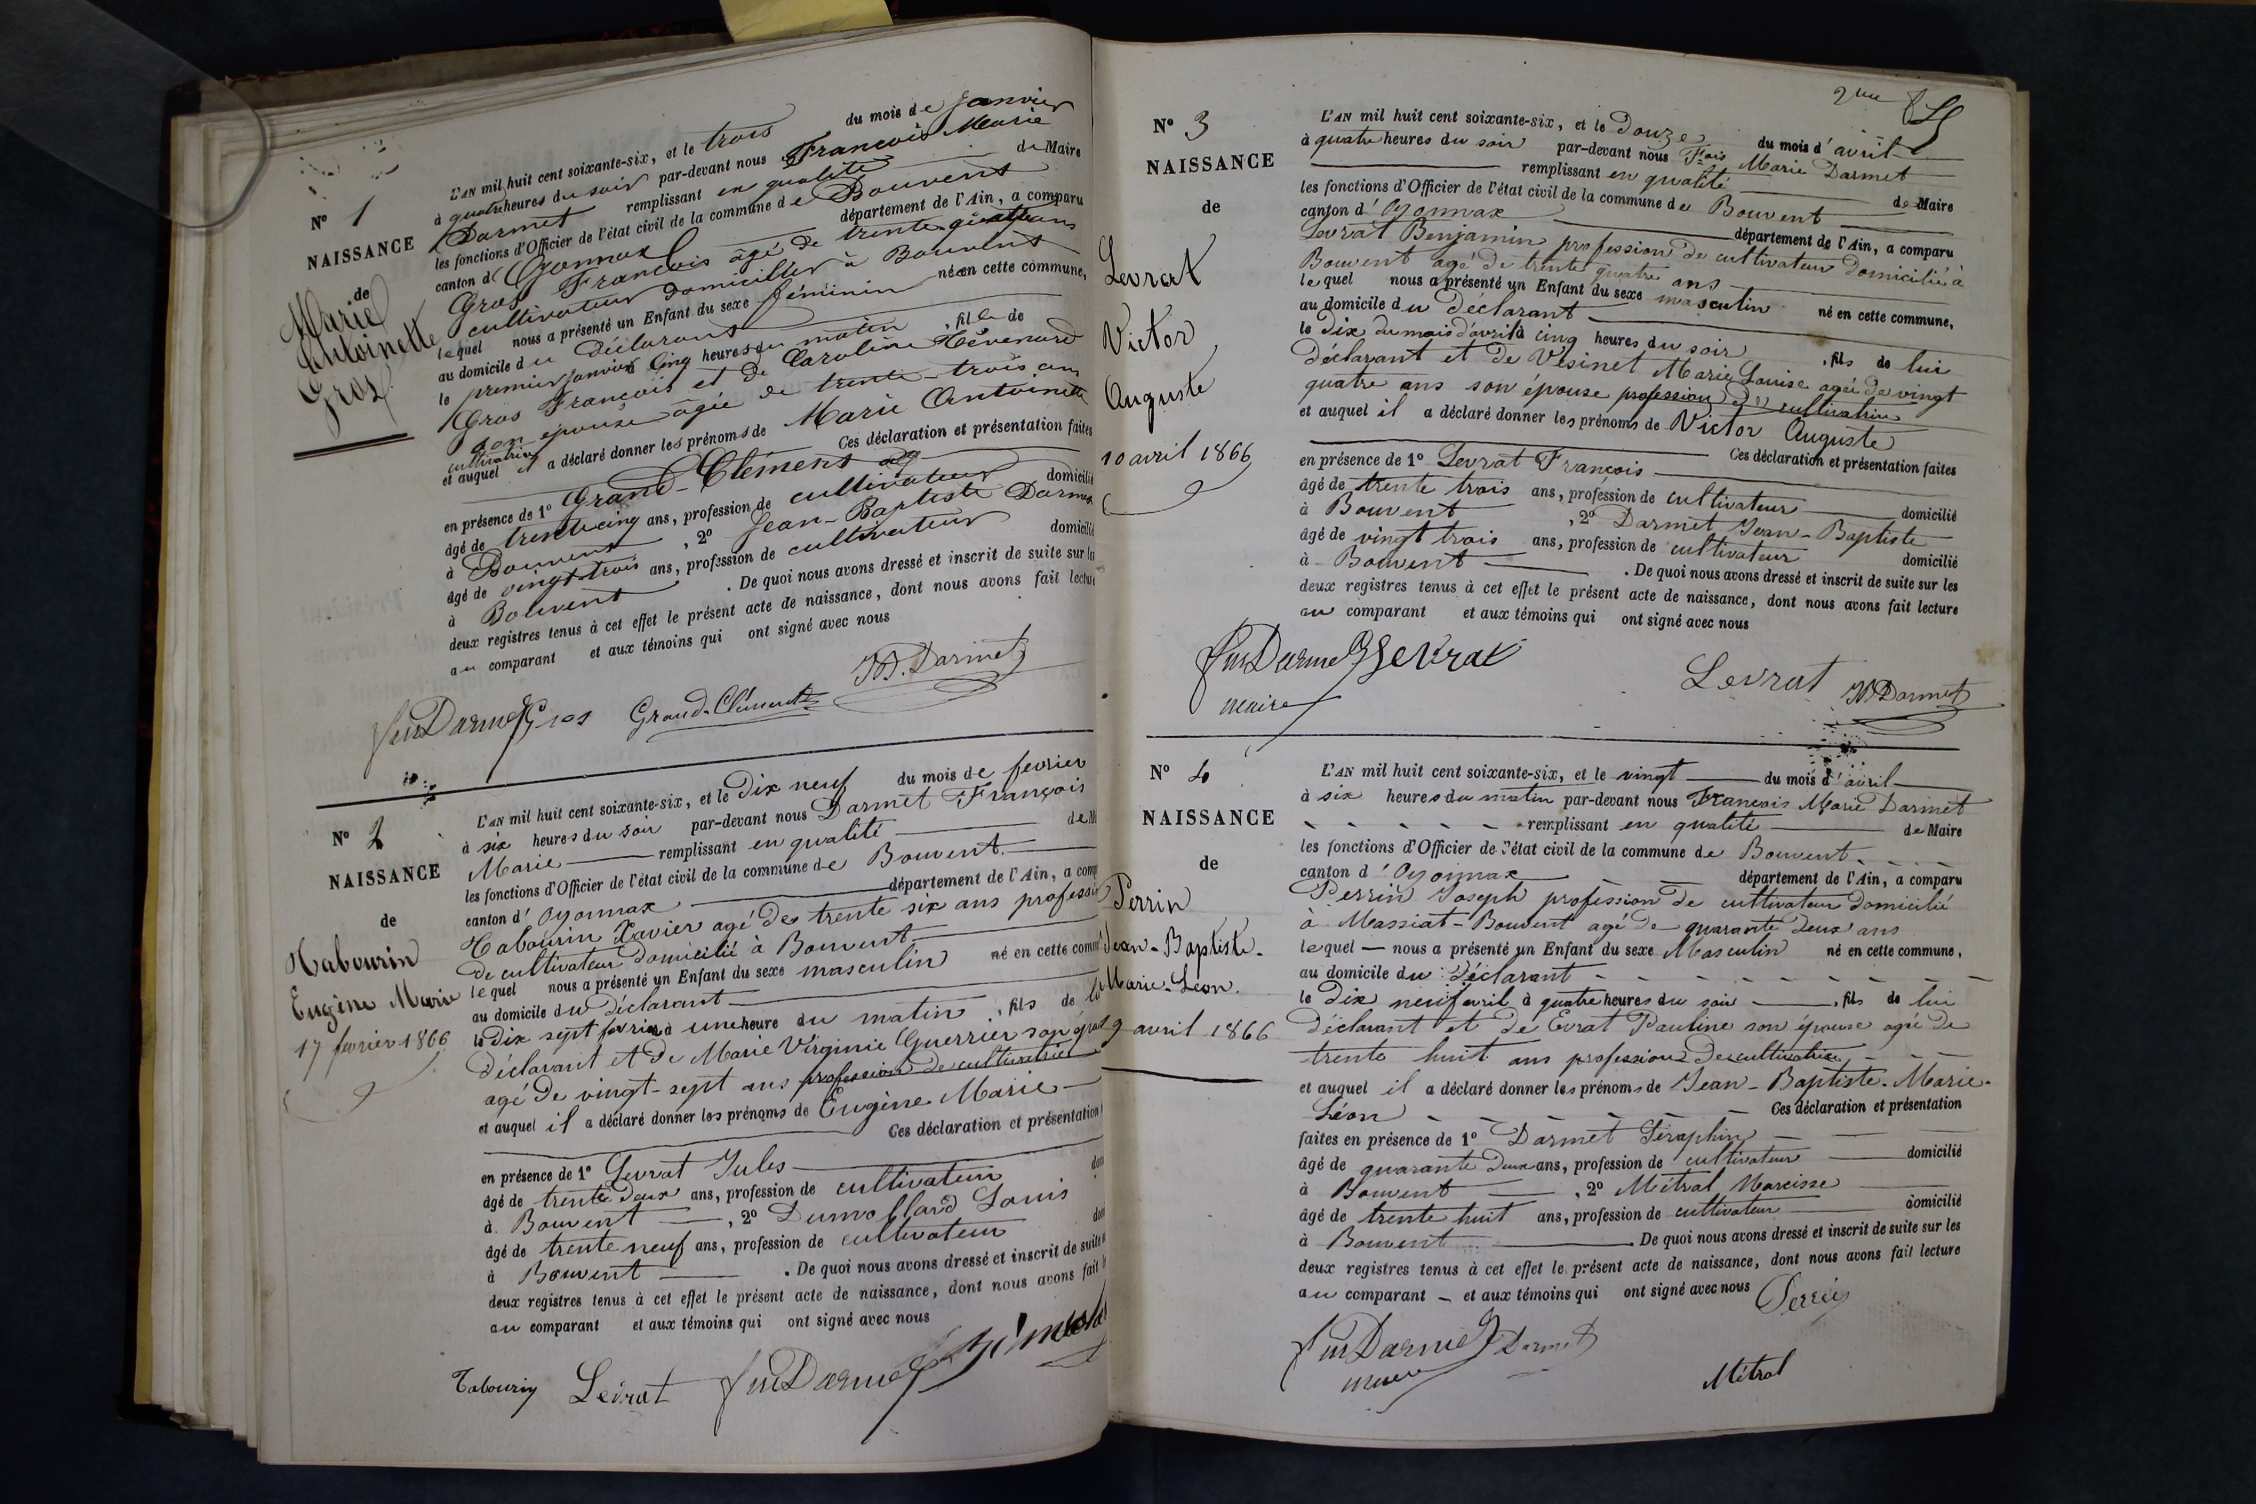 N° 1
NAISSANCE
de
Marie
Antoinette
Gros
L'AN mil huit cent soixante-six, et le trois du mois de janvier
à quatre heures du soir par-devant nous François Marie
Darmet remplissant en qualité de Maire
les fonctions d'Officier de l'état civil de la commune de Bouvent
canton d'Oyonnax département de l'Ain, a comparu
Gros François âgé de trente quatre ans
cultivateur domicilier à Bouvent
lequel nous a présenté un Enfant du sexe féminin née en cette commune,
au domicile du déclarant
le premier janvier à cinq heures du matin, fille de
Gros François et de Caroline Thévenard
son épouse âgée de trente-trois ans
cultivatrice
et auquel il a déclaré donner les prénoms de Marie Antoinette
Ces déclaration et présentation faites
en présence de 1° Grand-Clément
âgé de trente cinq ans, profession de cultivateur domicilié
à Bouvent, 2° Jean-Baptiste Darmet
âgé de vingt-trois ans, profession de cultivateur domicilié
à Bouvent. De quoi nous avons dressé et inscrit de suite sur les
deux registres tenus à cet effet le présent acte de naissance, dont nous avons fait lecture
au comparant et aux témoins qui ont signé avec nous
JB. Darmet
Darmet Gros Grand-Clément
N° 2
NAISSANCE
de
Tabourin
Eugène Marie
17 février 1866
L'AN mil huit cent soixante-six, et le dix neuf du mois de fevrier
à six heures du soir par-devant nous Darmet François
Marie remplissant en qualité de M
les fonctions d'Officier de l'état civil de la commune de Bouvent
canton d'Oyonnax département de l'Ain, a comp
Tabourin Xavier agé de trente six ans professi
de cultivateur domicilié à Bouvent
lequel nous a présenté un Enfant du sexe masculin né en cette comm
au domicile du déclarant
le dix sept fevrier à une heure du matin, fils de lui
déclarant et de Marie Virginie Guerrier son épouse
agé de vingt-sept ans profession de cultivatrice
et auquel il a déclaré donner les prénoms de Eugène Marie
Ces déclaration et présentation
en présence de 1° Levrat Jules
âgé de trente deux ans, profession de cultivateur dom
à Bouvent, 2° Dumollard Louis
âgé de trente neuf ans, profession de cultivateur dom
à Bouvent. De quoi nous avons dressé et inscrit de suite s
deux registres tenus à cet effet le présent acte de naissance, dont nous avons fait l
au comparant et aux témoins qui ont signé avec nous
Tabourin Levrat Darmet
2me
N° 3
NAISSANCE
de
Levrat
Victor
Auguste
10 avril 1866
L'AN mil huit cent soixante-six, et le douze du mois d'avril
à quatre heures du soir par-devant nous Fçois Marie Darmet
remplissant en qualité de Maire
les fonctions d'Officier de l'état civil de la commune de Bouvent
canton d'Oyonnax département de l'Ain, a comparu
Levrat Benjamin profession de cultivateur domicilié à
Bouvent agé de trente quatre ans
lequel nous a présenté un Enfant du sexe masculin né en cette commune,
au domicile du déclarant
le dix du mois d'avril à cinq heures du soir, fils de lui
déclarant et de Vésinet Marie Louise agée de vingt
quatre ans son épouse profession de cultivatrice
et auquel il a déclaré donner les prénoms de Victor Auguste
Ces déclaration et présentation faites
en présence de 1° Levrat François
âgé de trente trois ans, profession de cultivateur domicilié
à Bouvent, 2° Darmet Jean-Baptiste
âgé de vingt trois ans, profession de cultivateur domicilié
à Bouvent. De quoi nous avons dressé et inscrit de suite sur les
deux registres tenus à cet effet le présent acte de naissance, dont nous avons fait lecture
au comparant et aux témoins qui ont signé avec nous
Darmet Levrat
maire
Levrat JB Darmet
N° 4
NAISSANCE
de
Perrin
Jean-Baptiste-
Marie-Léon.
9 avril 1866
L'AN mil huit cent soixante-six, et le vingt du mois d'avril
à six heures du matin par-devant nous François Marie Darmet
remplissant en qualité de Maire
les fonctions d'Officier de l'état civil de la commune de Bouvent
canton d'Oyonnax département de l'Ain, a comparu
Perrin Joseph profession de cultivateur domicilié
à Massiat-Bouvent agé de quarante deux ans
lequel nous a présenté un Enfant du sexe Masculin né en cette commune,
au domicile du déclarant
le dix neuf avril à quatre heures du soir, fils de lui
déclarant et de Evrat Pauline son épouse agée de
trente huit ans profession de cultivatrice
et auquel il a déclaré donner les prénoms de Jean-Baptiste-Marie-
Léon Ces déclaration et présentation
faites en présence de 1° Darmet Séraphin
âgé de quarante deux ans, profession de cultivateur domicilié
à Bouvent, 2° Métral Narcisse
âgé de trente huit ans, profession de cultivateur domicilié
à Bouvent. De quoi nous avons dressé et inscrit de suite sur les
deux registres tenus à cet effet le présent acte de naissance, dont nous avons fait lecture
au comparant et aux témoins qui ont signé avec nous
Perrin
Darmet Darmet
maire
Métral